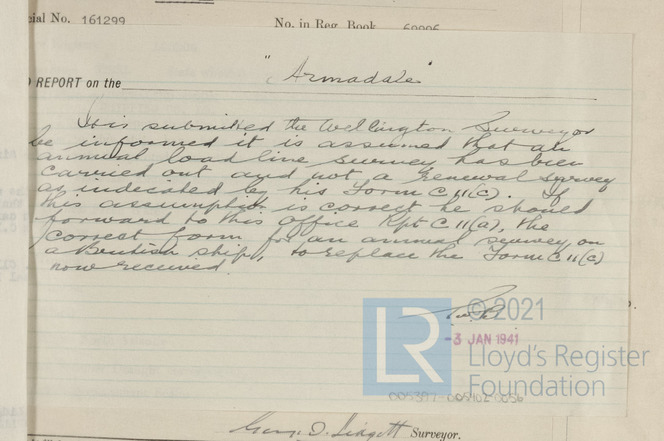 cial No. 161299 No. in Reg. Book
REPORT on the "Armadale"
It is submitted the Wellington Surveyor
be informed it is assumed that an
annual load line survey has been
carried out and not a Renewal Survey
as indecated by his Form C 11(c). If
this assumption is correct he should
forward to this Office Rpt C 11(a), the
correct form for an annual survey on
a British ship, to replace the Form C 11(c)
now received.
© 2021
-3 JAN 1941
LR
Lloyd's Register
Foundation
005397-005402-0256
George D. Lidgett Surveyor.